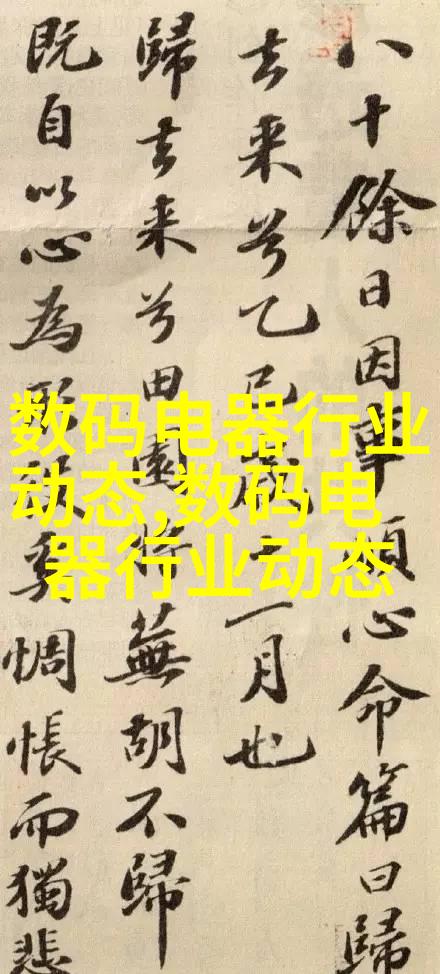 八十餘日因事順心命篇曰歸
去来兮乙巳歲十一月也
歸去来兮田園將蕪胡不歸
既自以心為形役奚惆悵而獨悲
数码电器行业
动态,数码电
器行业动态